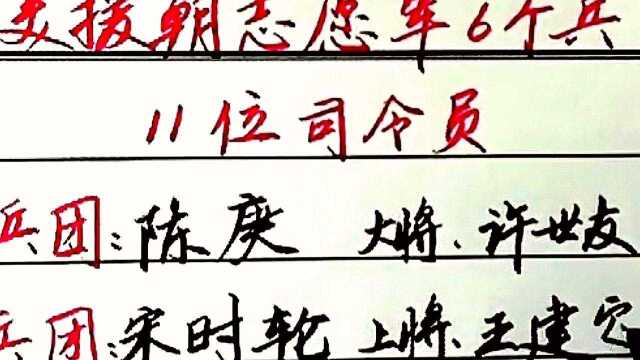 援朝志愿军6个兵
11位司令员
兵团:陈庚 大将、许世友
兵团:宋时轮 上将、王建安